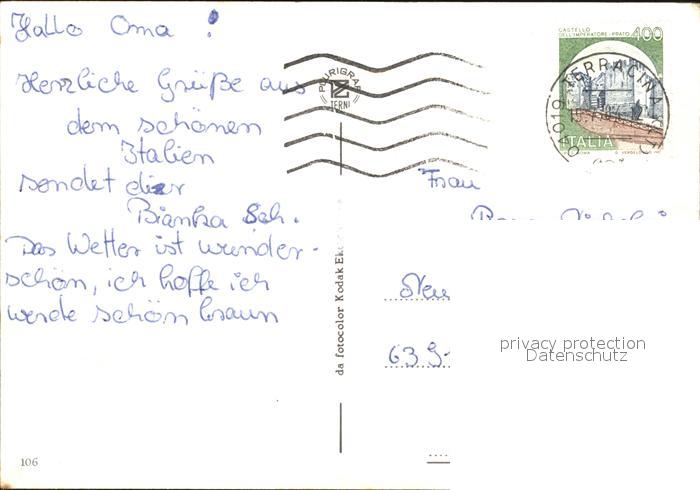 Hallo Oma !
Herzliche Grüße aus
dem schönen
Italien
sendet dir
Bianka Sch.
Das Wetter ist wunder-
schön, ich hoffe ich
werde schön braun
106
da fotocolor Kodak Ek
CASTELLO
DELL'IMPERATORE - PRATO 400
ITALIA
04019 TERRACINA
POURIGRAF
TERNI
Frau
Neu
639-
privacy protection
Datenschutz